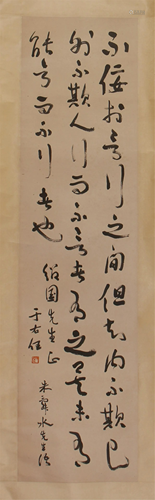 不佞於言行之間但知内不欺己
外不欺人行而不言者有之矣未有
能言而不行者也
紹國先生正
于右任
朱舜水先生語